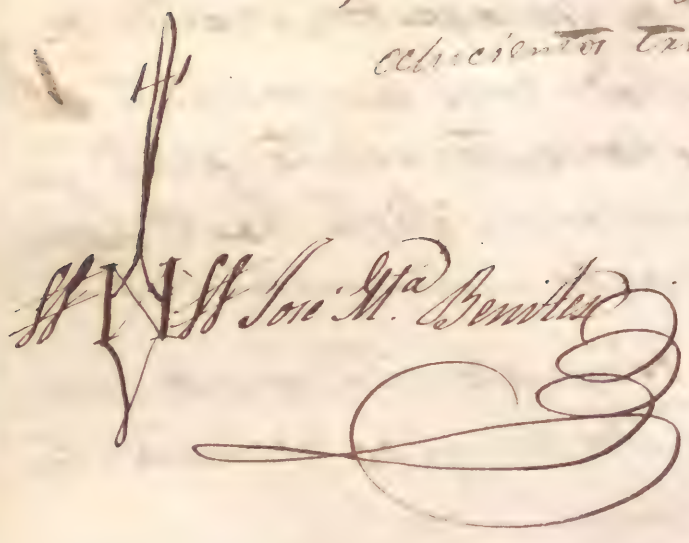 ochocientos
José Mª. Benites